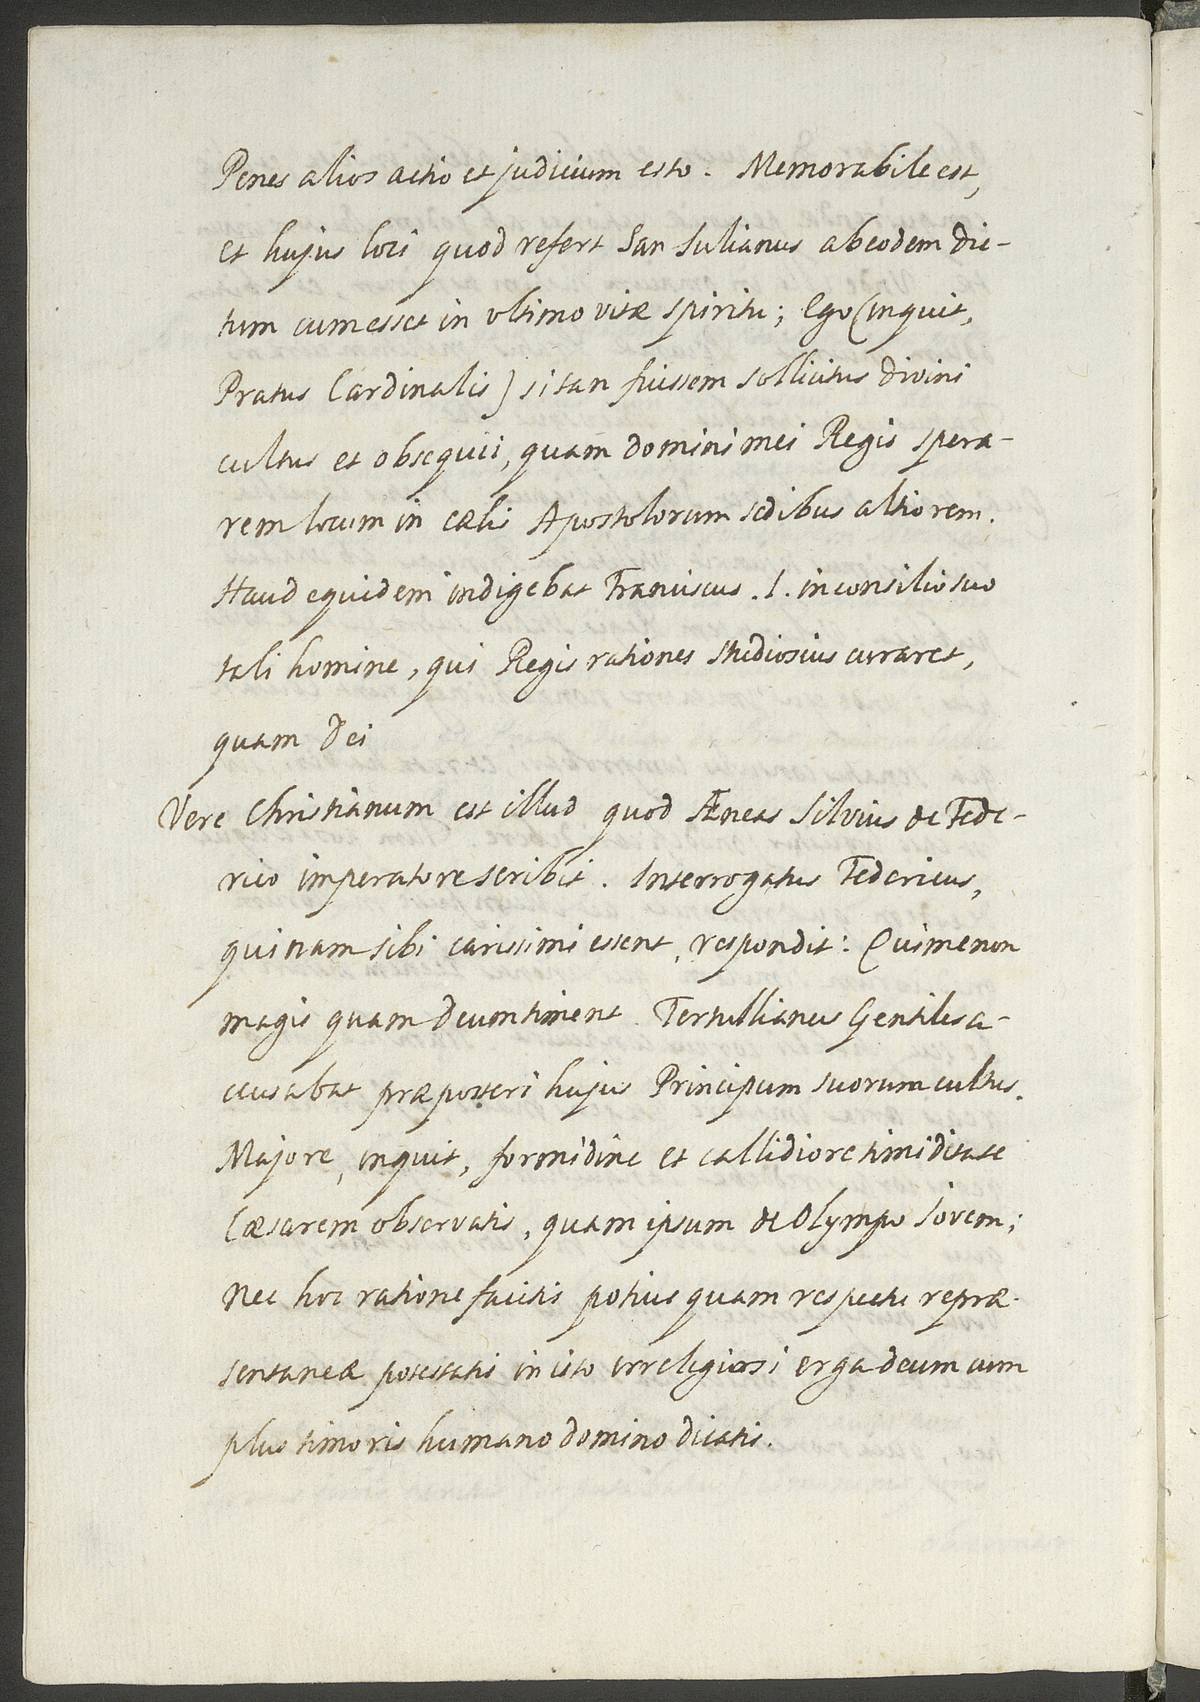 Penes alios actio et judicium esto. Memorabile est,
et hujus loci quod refert San Julianus ab eodem dic-
tum cum esset in ultimo vitæ spiritu; Ego (inquit,
Pratus Cardinalis) si tan fuissem sollicitus divini
cultus et obsequii, quam domini mei Regis spera-
rem locum in cælis Apostolorum sedibus altiorem.
Haud equidem indigebat Franciscus. I. in consilio suo
tali homine, qui Regis rationes studiosius curaret,
quam Dei
Vere Christianum est illud quod Æneas Silvius de Fede-
rico imperatore scribit. Interrogatus Federicus,
quinam sibi carissimi essent, respondit: Qui me non
magis quam deum timent. Tertullianus Gentiles a-
ccusabat præposteri hujus Principum suorum cultus.
Majore, inquit, formidine et callidiore timiditate
Cæsarem observatis, quam ipsum de Olympo Jovem;
nec hoc ratione facitis potius quam respectu repræ-
sentaneæ potestatis in isto irreligiosi erga deum cum
plus timoris humano domino dicatis.